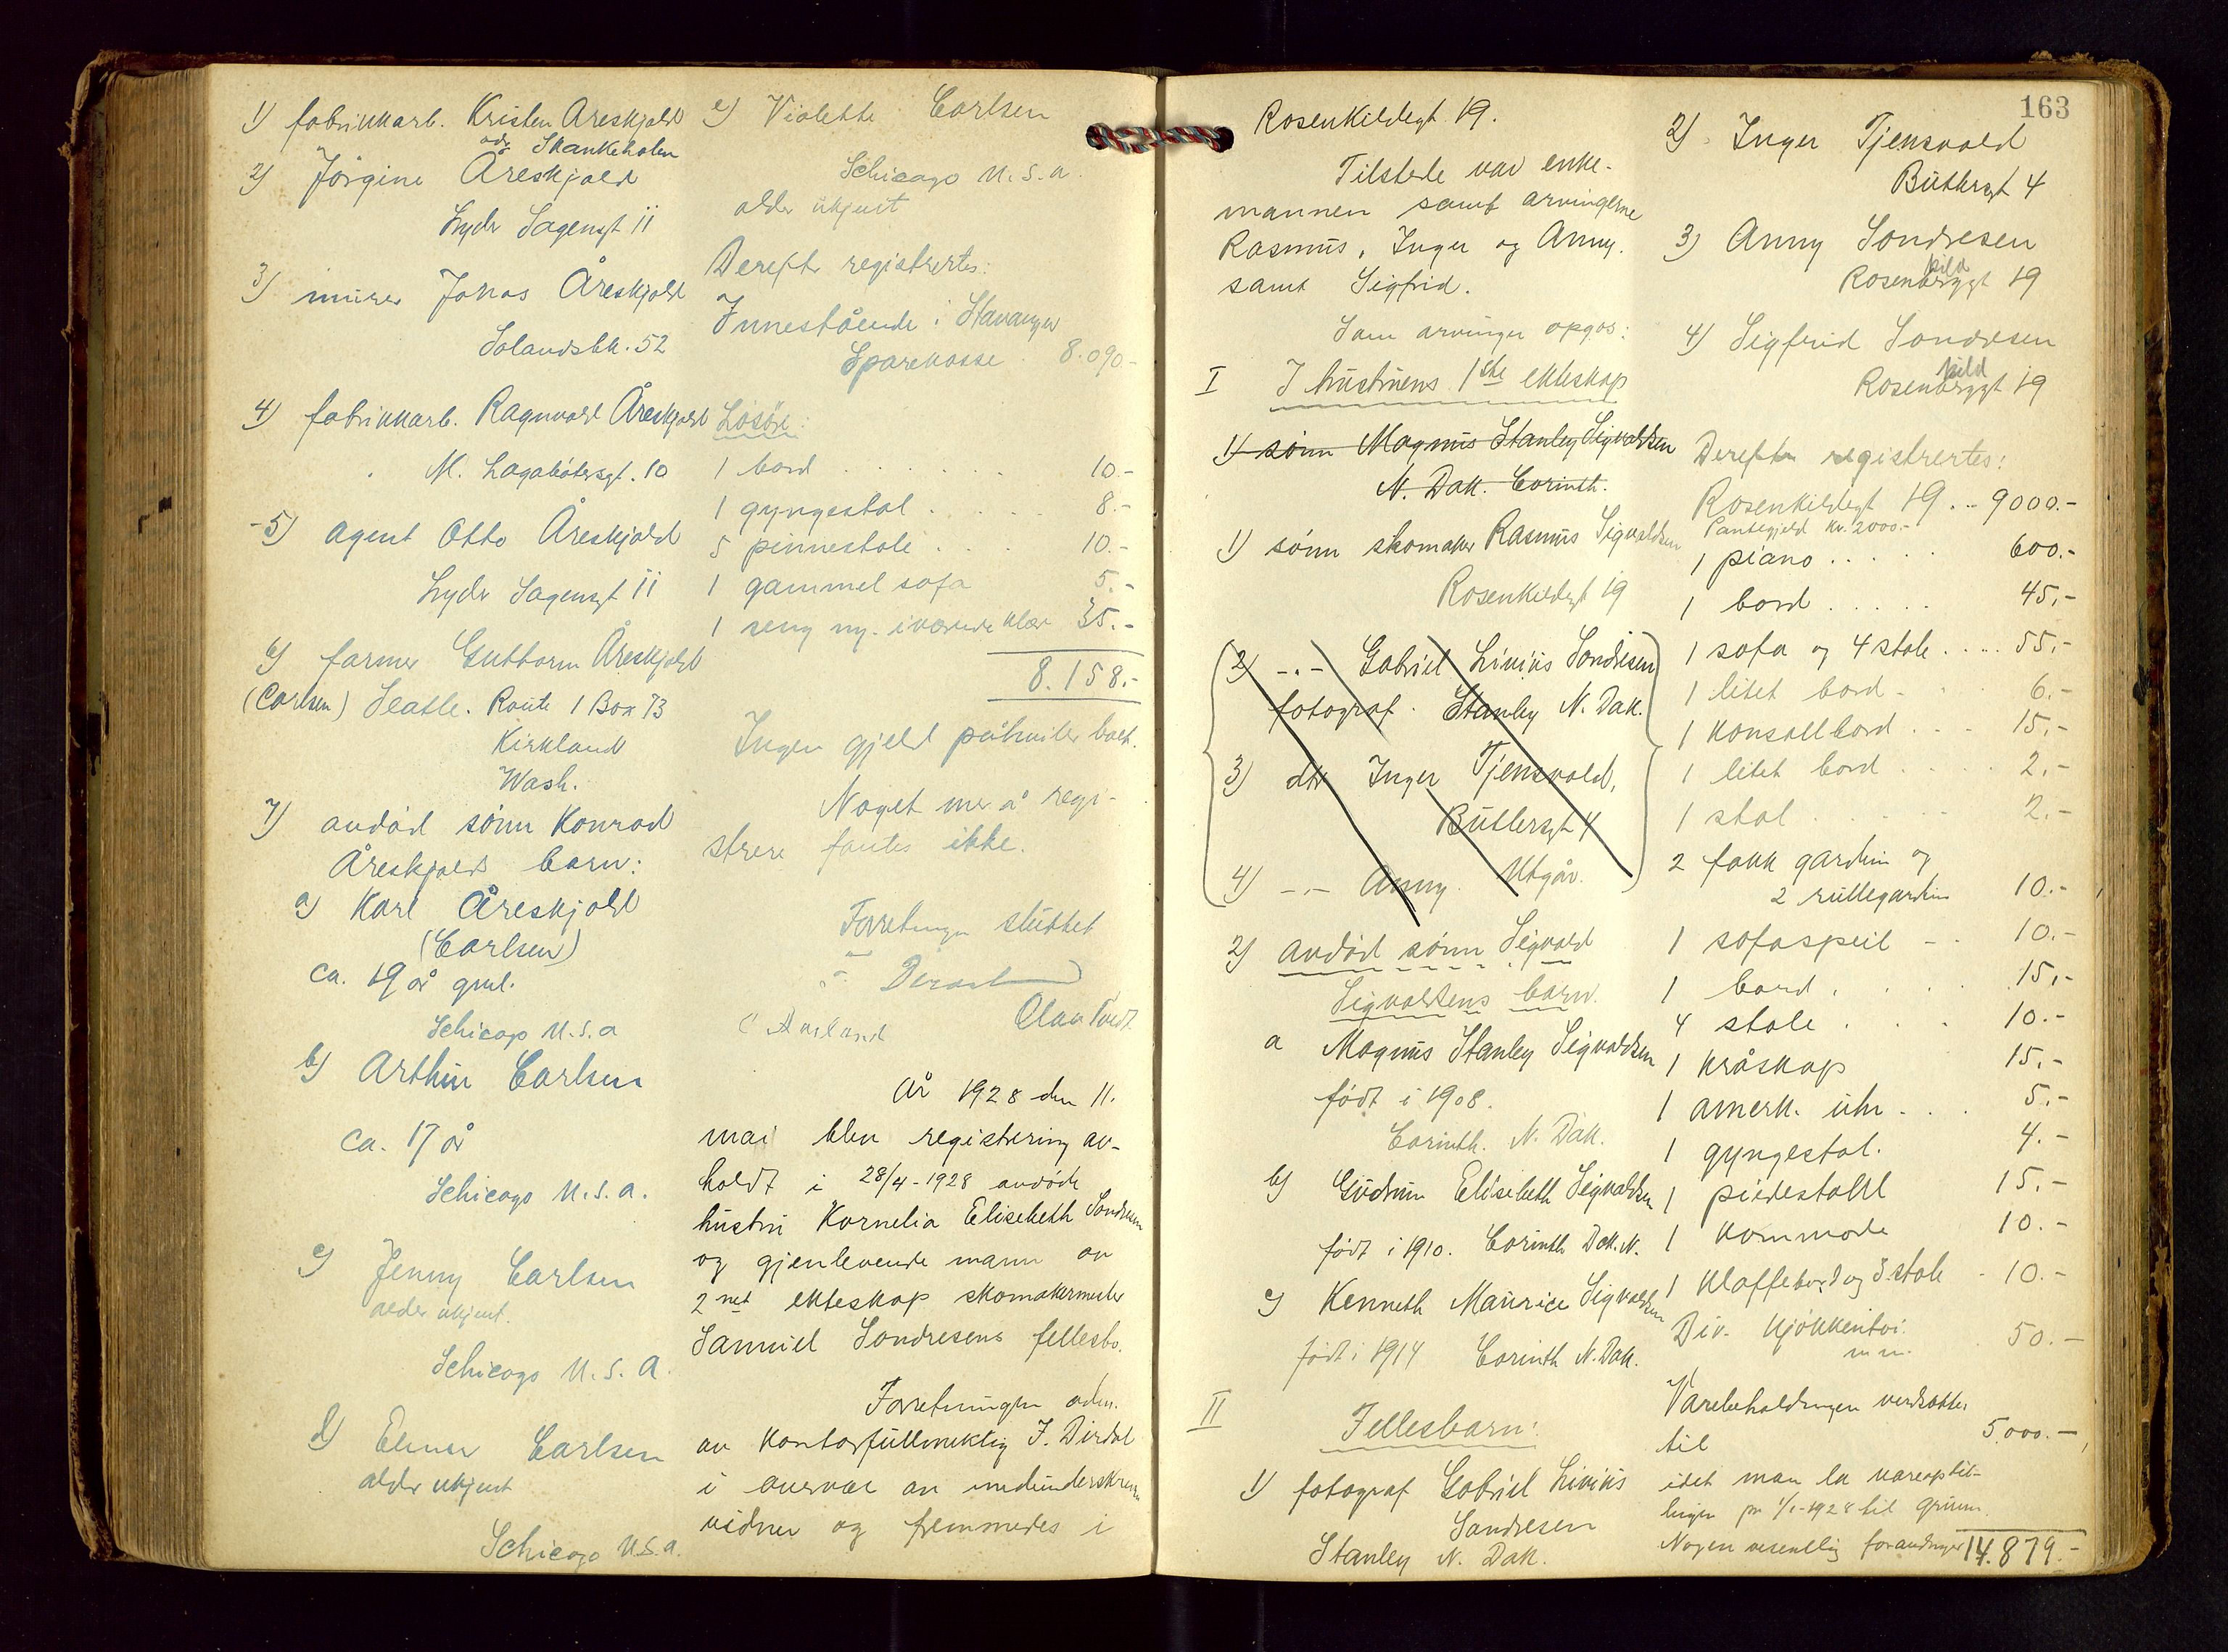 1) fabrikkarb. Kristen Åreskjold
adr. Skankeholen
2) Jörgine Åreskjold
Lyder Sagensgt 11
3) murer Jonas Åreskjold
Solandsbk. 52
4) fabrikkarb. Ragnvald Åreskjold
M. Lagabötersgt. 10
5) agent Otto Åreskjold
Lyder Sagensgt 11
6) farmer Guttorm Åreskjold
(Carlsen) Seatle. Route 1 Box 73
Kirkland
Wash.
7) avdöd sönn Konrad
Åreskjolds barn:
a) Karl Åreskjold
(Carlsen)
ca. 19 år gml.
Schicago U.S.a
b) Arthur Carlsen
ca. 17 år
Schicago U.S.a.
c) Jenny Carlsen
alder ukjent.
Schicago U.S.A.
d) Elmer Carlsen
alder ukjent
Schicago U.S.a.
e) Violette Carlsen
Schicago U.S.a.
alder ukjent
Derefter registrertes:
Innestående i Stavanger
Sparekasse . 8.090-
Lösöre:
1 bord . . . . . . 10.-
1 gyngestol . . . . . 8.-
5 pinnestole . . . 10.-
1 gammel sofa 5.-
1 seng og iværende klær 35.-
8.158.-
Ingen gjeld påhviler boet.
Noget mer å regi-
strere fantes ikke.
Forretningen sluttet
Dirdal
Aarland Olav Tvedt
År 1928 den 11.
mai blev registrering av-
holdt i 28/4-1928 avdöde
hustru Kornelia Elisebeth Sondresen
og gjenlevende mann av
2net ekteskap skomakermester
Samuel Sondresens fellesbo.
Forretningen adm.
av kontorfullmektig J. Dirdal
i overvær av medunderskrevne
vidner og fremmedes i
163
Rosenkildegt 19.
Tilstede var enke-
mannen samt arvingerne
Rasmus, Inger og Anny.
samt Sigfrid.
Som arvinger opgås:
I I hustruens 1ste ekteskap
1) sönn Magnus Stanley Sigvaldsen
N. Dak. Corinth.
1) sönn skomaker Rasmus Sigvaldsen
Rosenkildegt 19
2) -.- Gabriel Livius Sondresen
fotograf. Stanley N. Dak.
3) dtr Inger Tjensvold,
Butlersgt 4
4) -.- Anny. Utgår.
2) avdöd sönn Sigvald
Sigvaldsens barn.
a Magnus Stanley Sigvaldsen
född i 1908.
Corinth. N. Dak.
b) Gudrun Elisebeth Sigvaldsen
född i 1910. Corinth Dak. N.
c) Kenneth Maurice Sigvaldsen
född i 1914 Corinth N. Dak.
II Fellesbarn:
1) fotograf Gabriel Livius
Sondresen
Stanley N. Dak.
2) Inger Tjensvold
Butlersgt 4
3) Anny Sondresen
kild
Rosenberggt 19
4) Sigfrid Sondresen
kild
Rosenberggt 19
Derefter registrertes:
Rosenkildegt 19 . . 9000.-
Pantegjeld kr. 2000.-
1 piano . . . . . 600.-
1 bord . . . . . 45,-
1 sofa og 4 stole . . . . 55,-
1 litet bord - . . 6.-
1 konsollbord . . . 15,-
1 litet bord . . . 2,-
1 stol . . . . . 2.-
2 fakk gardin og
2 rullegardin 10.-
1 sofaspeil - . 10.-
1 bord . . . . 15,-
4 stole . . . 10.-
1 kråskap 15.-
1 amerk. uhr - . . 5.-
1 gyngestol. 4.-
1 piedestakkl 15.-
1 kommode 10.-
1 klaffebord og 3 stole - 10.-
Div. kjökkentöi
m m. 50.-
Varebeholdningen verdsattes
til 5.000.-
idet man la vareoptel-
lingen pr 1/1-1928 til grunn.
Nogen vesentlig forandringer 14.879.-